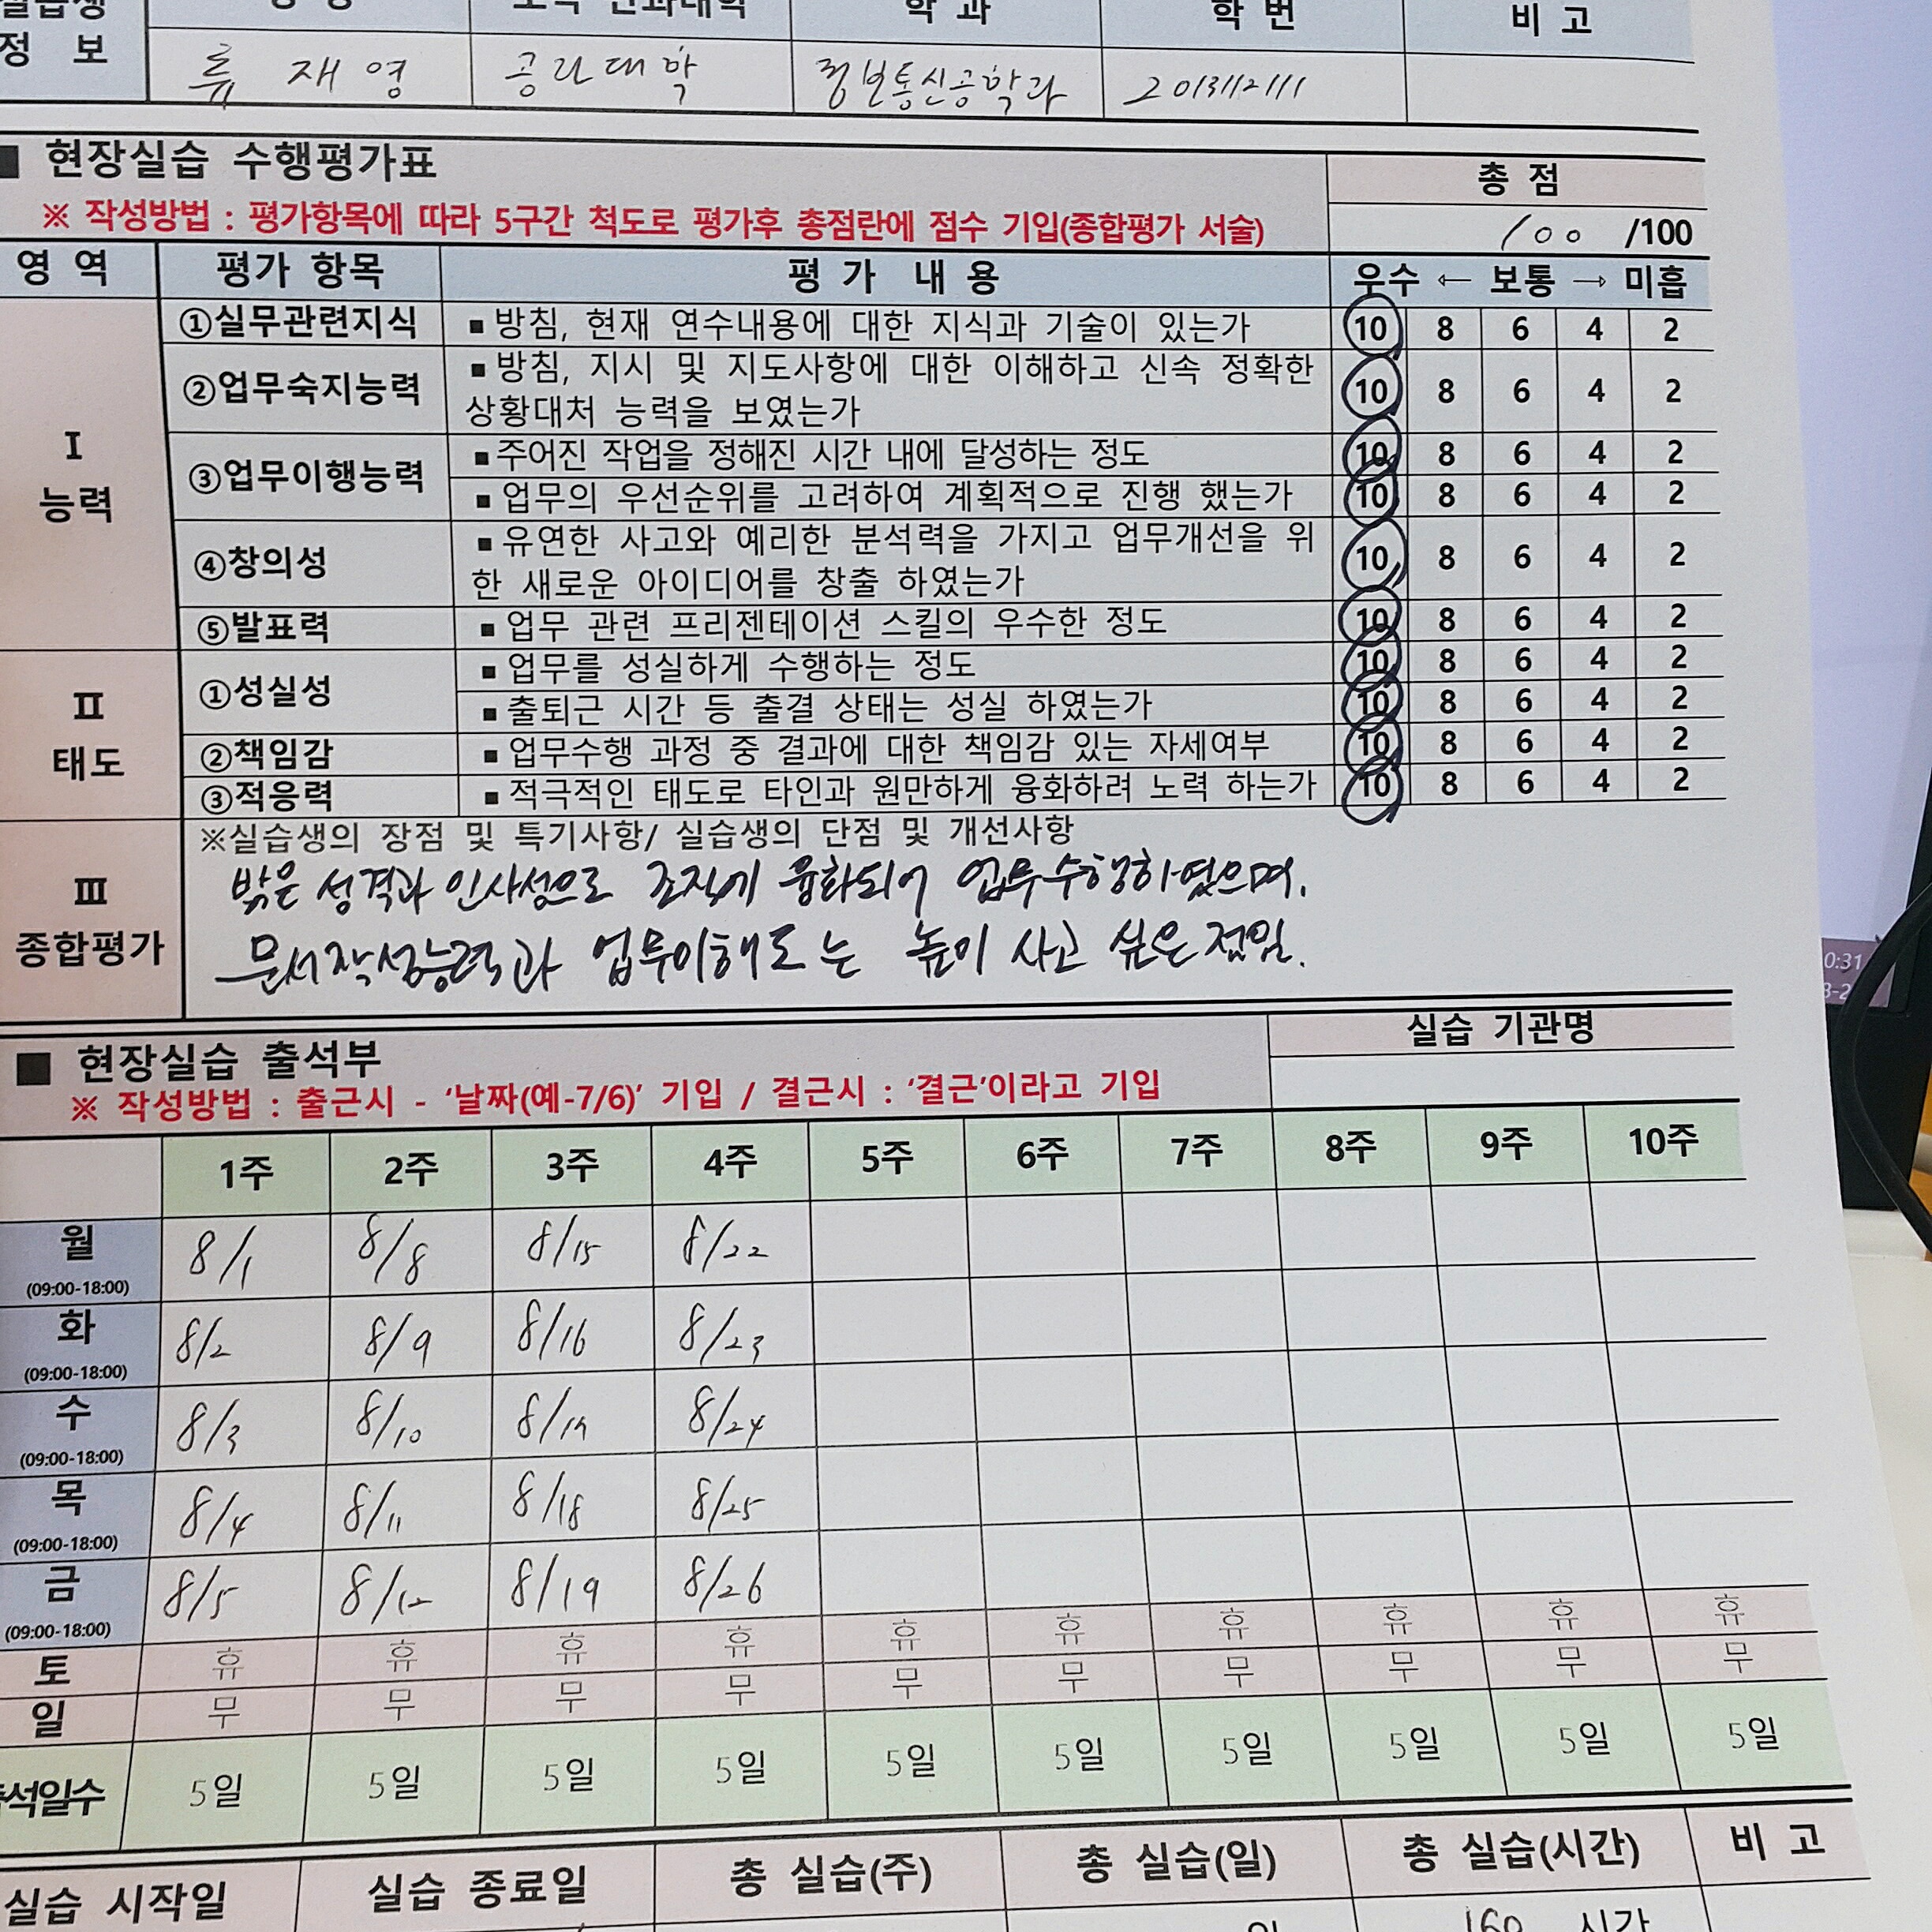 정 보
학 과
학 번
비 고
류 재 영 공과대학 정보통신공학과
■ 현장실습 수행평가표
총 점
※ 작성방법 : 평가항목에 따라 5구간 척도로 평가후 총점란에 점수 기입(종합평가 서술)
100 /100
영 역 평가 항목 평 가 내 용 우수 ← 보통 → 미흡
Ⅰ
능력
①실무관련지식 ▪방침, 현재 연수내용에 대한 지식과 기술이 있는가 10 8 6 4 2
②업무숙지능력 ▪방침, 지시 및 지도사항에 대한 이해하고 신속 정확한
상황대처 능력을 보였는가 10 8 6 4 2
③업무이행능력 ▪주어진 작업을 정해진 시간 내에 달성하는 정도 10 8 6 4 2
▪업무의 우선순위를 고려하여 계획적으로 진행 했는가 10 8 6 4 2
④창의성 ▪유연한 사고와 예리한 분석력을 가지고 업무개선을 위
한 새로운 아이디어를 창출 하였는가 10 8 6 4 2
⑤발표력 ▪업무 관련 프리젠테이션 스킬의 우수한 정도 10 8 6 4 2
Ⅱ
태도
①성실성 ▪업무를 성실하게 수행하는 정도 10 8 6 4 2
▪출퇴근 시간 등 출결 상태는 성실 하였는가 10 8 6 4 2
②책임감 ▪업무수행 과정 중 결과에 대한 책임감 있는 자세여부 10 8 6 4 2
③적응력 ▪적극적인 태도로 타인과 원만하게 융화하려 노력 하는가 10 8 6 4 2
Ⅲ
종합평가
※실습생의 장점 및 특기사항/ 실습생의 단점 및 개선사항
밝은 성격과 인사성으로 조직에 융화되어 업무수행하였으며.
문서작성능력과 업무이해도는 높이 사고 싶은 점임.
■ 현장실습 출석부
실습 기관명
※ 작성방법 : 출근시 - ‘날짜(예-7/6)’ 기입 / 결근시 : ‘결근’이라고 기입
1주 2주 3주 4주 5주 6주 7주 8주 9주 10주
월 8/1 8/8 8/15 8/22
(09:00-18:00)
화 8/2 8/9 8/16 8/23
(09:00-18:00)
수 8/3 8/10 8/17 8/24
(09:00-18:00)
목 8/4 8/11 8/18 8/25
(09:00-18:00)
금 8/5 8/12 8/19 8/26
(09:00-18:00)
토 휴 휴 휴 휴 휴 휴 휴 휴 휴 휴
일 무 무 무 무 무 무 무 무 무 무
석일수 5일 5일 5일 5일 5일 5일 5일 5일 5일 5일
실습 시작일 실습 종료일 총 실습(주) 총 실습(일) 총 실습(시간) 비 고
160 시간
0:31